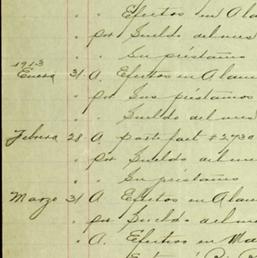 " " Efectos en Alam
" por Sueldo del mes
" " Su préstamo
1913
Enero 31 A. Efectos en Alam
" por Sus préstamos
" " Sueldo del mes
Febrero 28 A parte fact #2730
" por Sueldo del mes
" " Su préstamo
Marzo 31 A Efectos en Alam
" por Sueldo del mes
" A. Efectivo en Ma